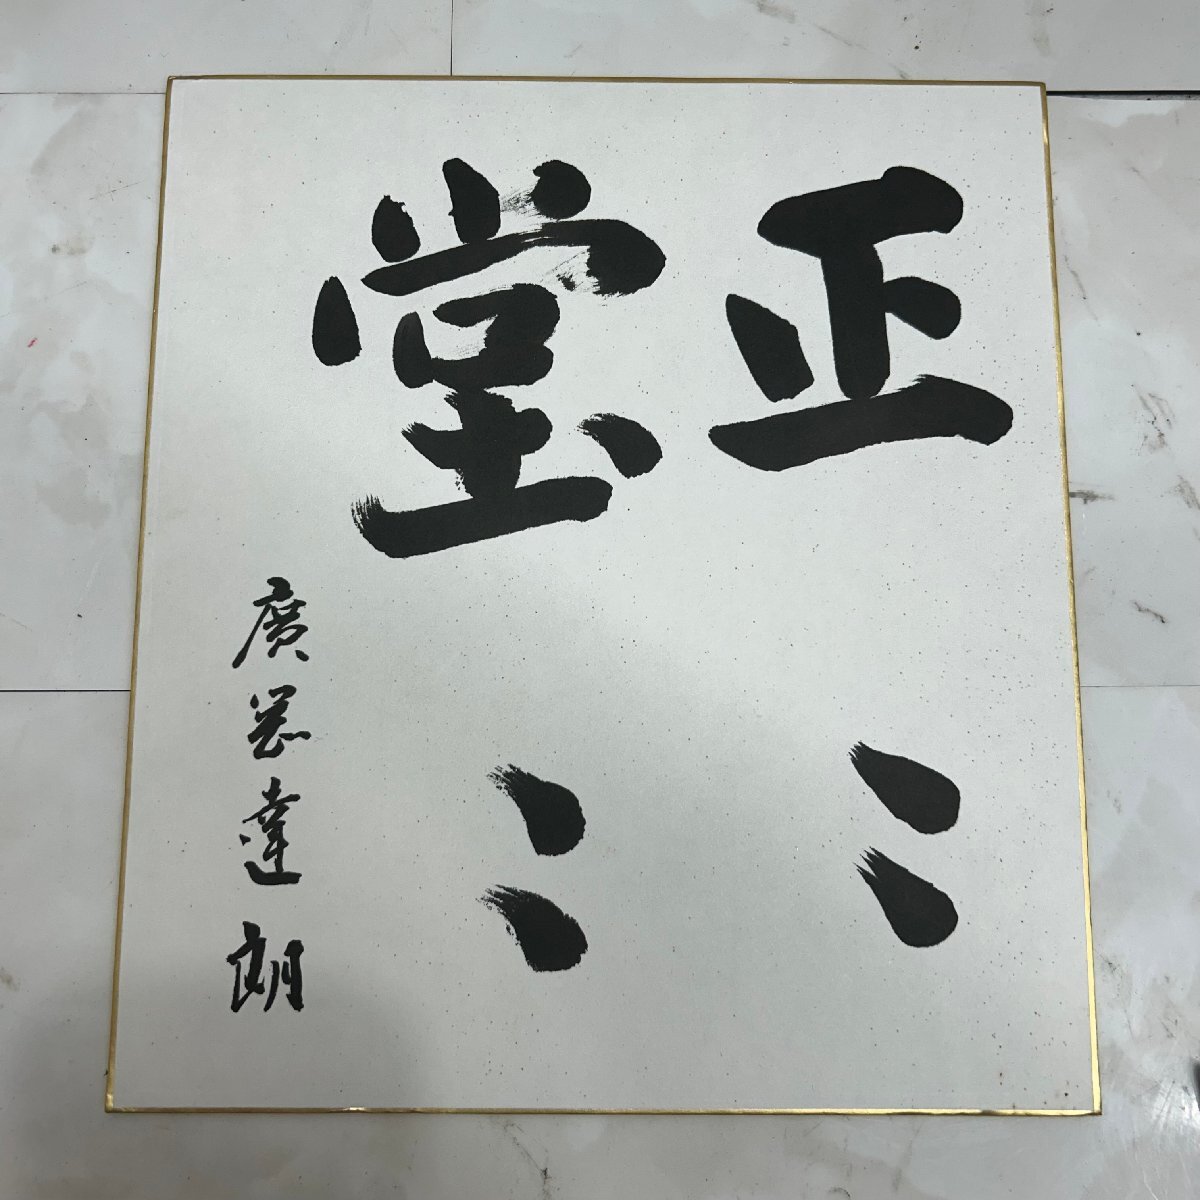 正々
堂々
廣岡達朗